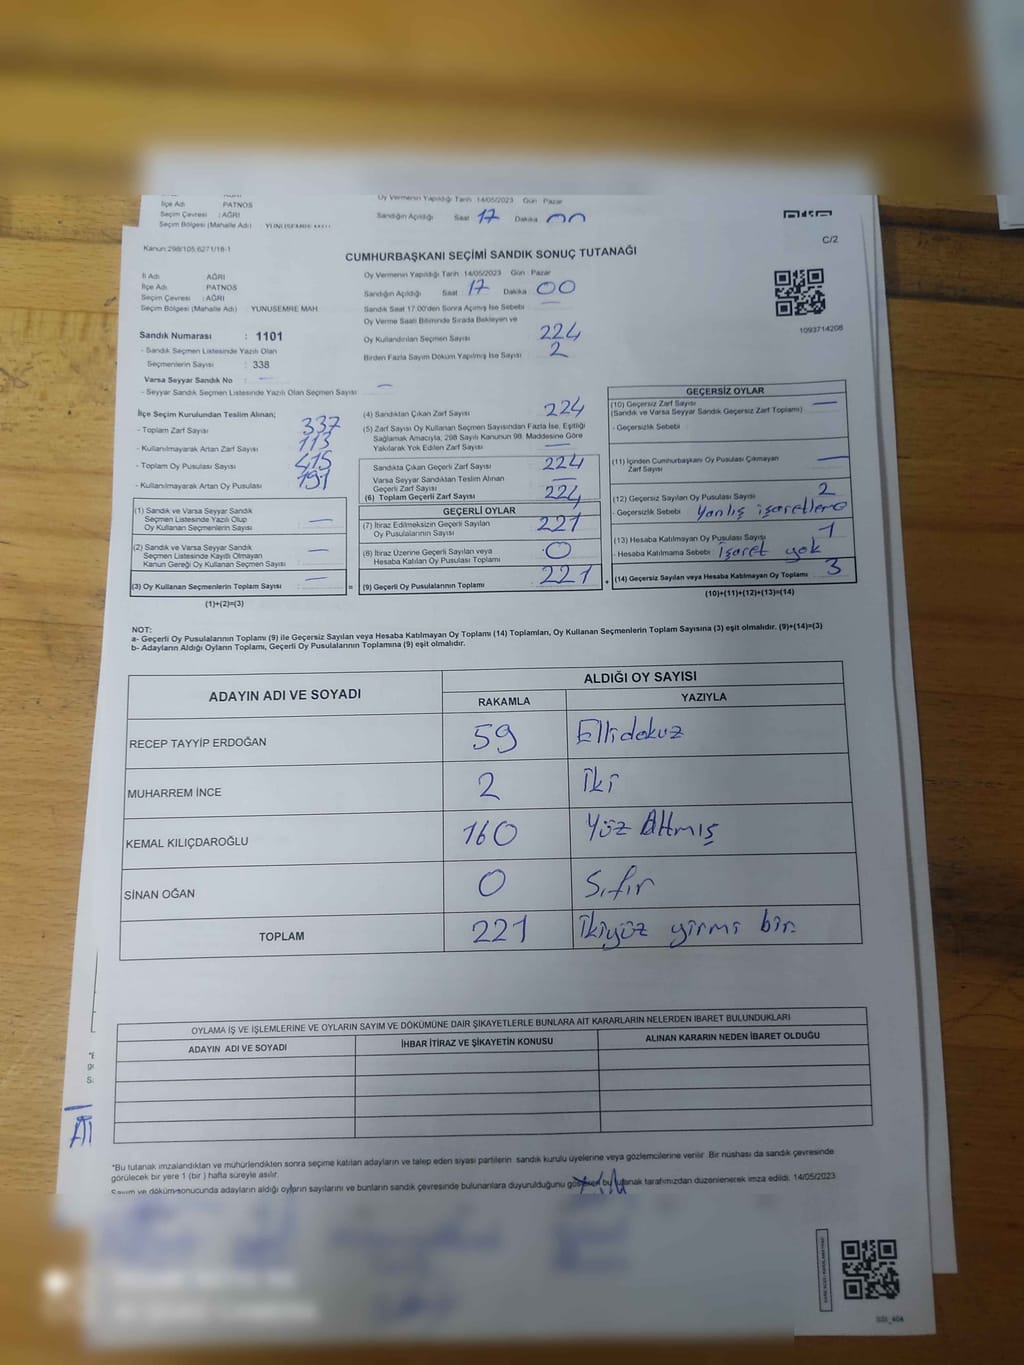 İlçe Adı : PATNOS
Seçim Çevresi : AĞRI
Seçim Bölgesi (Mahalle Adı) : YUNUSEMRE
Oy Vermenin Yapıldığı Tarih 14/05/2023 Gün Pazar
Sandığın Açıldığı Saat 17 Dakika 00
C/2
Kanun:298/105,6271/16-1
CUMHURBAŞKANI SEÇİMİ SANDIK SONUÇ TUTANAĞI
İl Adı : AĞRI
İlçe Adı : PATNOS
Seçim Çevresi : AĞRI
Seçim Bölgesi (Mahalle Adı) : YUNUSEMRE MAH.
Oy Vermenin Yapıldığı Tarih 14/05/2023 Gün : Pazar
Sandığın Açıldığı Saat 17 Dakika 00
Sandık Saat 17:00'den Sonra Açılmış İse Sebebi —
Oy Verme Saati Bitiminde Sırada Bekleyen ve
Oy Kullandırılan Seçmen Sayısı 224
Birden Fazla Sayım Döküm Yapılmış İse Sayısı 2
1093714208
Sandık Numarası : 1101
- Sandık Seçmen Listesinde Yazılı Olan
Seçmenlerin Sayısı : 338
Varsa Seyyar Sandık No : —
- Seyyar Sandık Seçmen Listesinde Yazılı Olan Seçmen Sayısı : —
İlçe Seçim Kurulundan Teslim Alınan;
- Toplam Zarf Sayısı : 337
- Kullanılmayarak Artan Zarf Sayısı : 113
- Toplam Oy Pusulası Sayısı : 415
- Kullanılmayarak Artan Oy Pusulası : 191
(1) Sandık ve Varsa Seyyar Sandık
Seçmen Listesinde Yazılı Olup
Oy Kullanan Seçmenlerin Sayısı : —
(2) Sandık ve Varsa Seyyar Sandık
Seçmen Listesinde Kayıtlı Olmayan
Kanun Gereği Oy Kullanan Seçmen Sayısı : —
(3) Oy Kullanan Seçmenlerin Toplam Sayısı : —
(1)+(2)=(3)
=
(4) Sandıktan Çıkan Zarf Sayısı 224
(5) Zarf Sayısı Oy Kullanan Seçmen Sayısından Fazla İse, Eşitliği
Sağlamak Amacıyla, 298 Sayılı Kanunun 98. Maddesine Göre
Yakılarak Yok Edilen Zarf Sayısı —
Sandıkta Çıkan Geçerli Zarf Sayısı 224
Varsa Seyyar Sandıktan Teslim Alınan
Geçerli Zarf Sayısı —
(6) Toplam Geçerli Zarf Sayısı 224
GEÇERLİ OYLAR
(7) İtiraz Edilmeksizin Geçerli Sayılan
Oy Pusulalarının Sayısı 221
(8) İtiraz Üzerine Geçerli Sayılan veya
Hesaba Katılan Oy Pusulası Toplamı 0
(9) Geçerli Oy Pusulalarının Toplamı 221
+
GEÇERSİZ OYLAR
(10) Geçersiz Zarf Sayısı —
(Sandık ve Varsa Seyyar Sandık Geçersiz Zarf Toplamı)
- Geçersizlik Sebebi :
(11) İçinden Cumhurbaşkanı Oy Pusulası Çıkmayan
Zarf Sayısı —
(12) Geçersiz Sayılan Oy Pusulası Sayısı 2
- Geçersizlik Sebebi : Yanlış işaretleme
(13) Hesaba Katılmayan Oy Pusulası Sayısı 1
- Hesaba Katılmama Sebebi : İşaret yok
(14) Geçersiz Sayılan veya Hesaba Katılmayan Oy Toplamı 3
(10)+(11)+(12)+(13)=(14)
NOT:
a- Geçerli Oy Pusulalarının Toplamı (9) ile Geçersiz Sayılan veya Hesaba Katılmayan Oy Toplamı (14) Toplamları, Oy Kullanan Seçmenlerin Toplam Sayısına (3) eşit olmalıdır. (9)+(14)=(3)
b- Adayların Aldığı Oyların Toplamı, Geçerli Oy Pusulalarının Toplamına (9) eşit olmalıdır.
ADAYIN ADI VE SOYADI
ALDIĞI OY SAYISI
RAKAMLA YAZIYLA
RECEP TAYYİP ERDOĞAN 59 Ellidokuz
MUHARREM İNCE 2 İki
KEMAL KILIÇDAROĞLU 160 Yüz Altmış
SİNAN OĞAN 0 Sıfır
TOPLAM 221 İkiyüz yirmi bir.
OYLAMA İŞ VE İŞLEMLERİNE VE OYLARIN SAYIM VE DÖKÜMÜNE DAİR ŞİKAYETLERLE BUNLARA AİT KARARLARIN NELERDEN İBARET BULUNDUKLARI
ADAYIN ADI VE SOYADI İHBAR İTİRAZ VE ŞİKAYETİN KONUSU ALINAN KARARIN NEDEN İBARET OLDUĞU
*Bu tutanak imzalandıktan ve mühürlendikten sonra seçime katılan adayların ve talep eden siyasi partilerin sandık kurulu üyelerine veya gözlemcilerine verilir. Bir nüshası da sandık çevresinde
görülecek bir yere 1 (bir) hafta süreyle asılır.
Sayım ve döküm sonucunda adayların aldığı oyların sayılarını ve bunların sandık çevresinde bulunanlara duyurulduğunu gösteren bu tutanak tarafımızdan düzenlenerek imza edildi. 14/05/2023